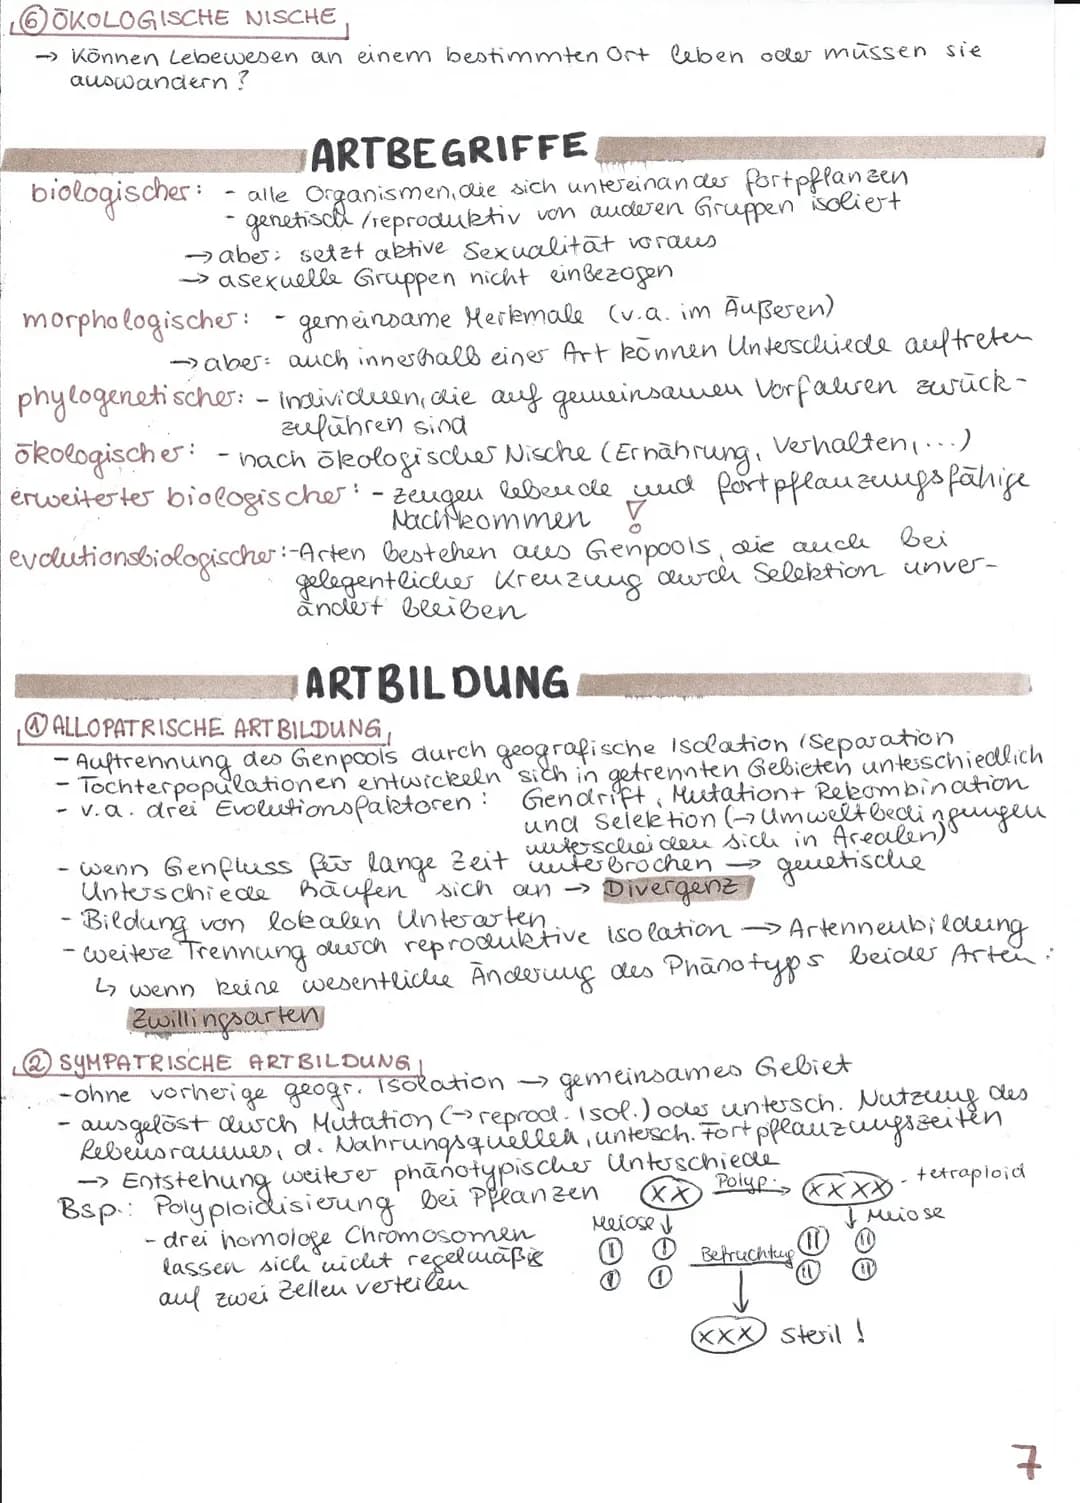 ⑥ ÖKOLOGISCHE NISCHE
→ Können Lebewesen an einem bestimmten Ort leben oder müssen sie
auswandern?
ARTBEGRIFFE
biologischer: - alle Organismen, die sich untereinander fortpflanzen
- genetisch/reproduktiv von anderen Gruppen isoliert
→ aber: setzt aktive Sexualität voraus
→ asexuelle Gruppen nicht einbezogen
morphologischer: - gemeinsame Merkmale (v.a. im Äußeren)
→ aber: auch innerhalb einer Art können Unterschiede auftreten
phylogenetischer: - Individuen, die auf gemeinsamen Vorfahren zurück-
zuführen sind
ökologischer: - nach ökologischer Nische (Ernährung, Verhalten, ...)
erweiterter biologischer: - zeugen lebende und fortpflanzungsfähige
Nachkommen !
evolutionsbiologischer: - Arten bestehen aus Genpools, die auch bei
gelegentlicher Kreuzung durch Selektion unver-
ändert bleiben
ARTBILDUNG
① ALLOPATRISCHE ARTBILDUNG
- Auftrennung des Genpools durch geografische Isolation (Separation
- Tochterpopulationen entwickeln sich in getrennten Gebieten unterschiedlich
- v.a. drei Evolutionsfaktoren: Gendrift, Mutation+ Rekombination
und Selektion (→ Umweltbedingungen
unterscheiden sich in Arealen)
- wenn Genfluss für lange Zeit unterbrochen → genetische
Unterschiede häufen sich an → Divergenz
- Bildung von lokalen Unterarten
- weitere Trennung durch reproduktive isolation → Artenneubildung
↳ wenn keine wesentliche Änderung des Phänotyps beider Arten:
Zwillingsarten
② SYMPATRISCHE ARTBILDUNG
- ohne vorherige geogr. Isolation → gemeinsames Gebiet
- ausgelöst durch Mutation (→ reprod. Isol.) oder untersch. Nutzung des
Lebensraumes, d. Nahrungsquellen, untersch. Fortpflanzungszeiten
→ Entstehung weiterer phänotypischer Unterschiede
Bsp.: Polyploidisierung bei Pflanzen
XX Polyp. → XXXX - tetraploid
- drei homologe Chromosomen
lassen sich nicht regelmäßig
auf zwei Zellen verteilen
Meiose ↓ ↓ Meiose
Befruchtung
XXX steril!
7